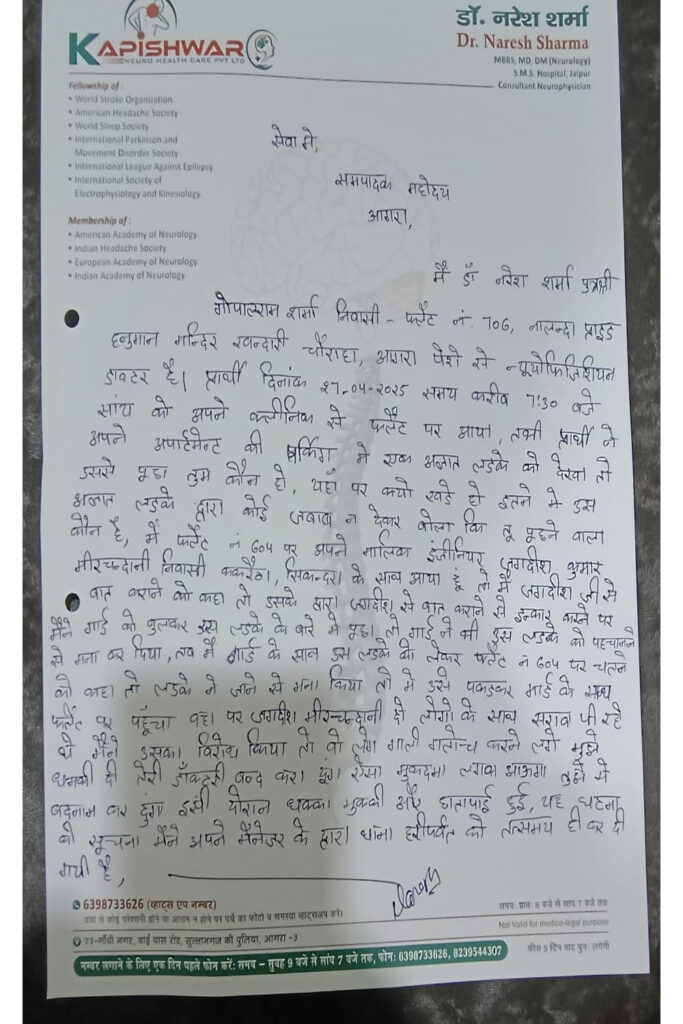 KAPISHWAR
NEURO HEALTH CARE PVT LTD
डॉ. नरेश शर्मा
Dr. Naresh Sharma
MBBS, MD, DM (Neurology)
S.M.S. Hospital, Jaipur
Consultant Neurophysician
Fellowship of :
• World Stroke Organization
• American Headache Society
• World Sleep Society
• International Parkinson and
Movement Disorder Society
• International League Against Epilepsy
• International Society of
Electrophysiology and Kinesiology.
Membership of :
• American Academy of Neurology
• Indian Headache Society.
• European Academy of Neurology
• Indian Academy of Neurology.
सेवा मे,
समपादक महोदय
आगरा,
मै डॉ नरेश शर्मा पुत्रश्री
गोपालराम शर्मा निवासी - फ्लैट नं. 706, नालन्दा प्राइड
हनुमान मन्दिर खन्दारी चौराहा, आगरा पेशे से न्यूयोफिजिशियन
डाक्टर है। प्रार्थी दिनांक 27-04-2025 समय करीब 7:30 बजे
सांय को अपने क्लीनिक से फ्लैट पर आया, तभी प्रार्थी ने
अपने अपार्टमेन्ट की पर्किग मे एक अज्ञात लडके को देखा तो
उससे पूछा तुम कौन हो, यहाँ पर क्यो खडे हो इतने मे उस
अज्ञात लडके द्वारा कोई जवाब न देकर बोला कि तू पूछने वाला
कौन है, मै फ्लैट नं 604 पर अपने मालिक इंजीनियर जगदीश कुमार
मीरचन्दानी निवासी ककरैठा, सिकन्दरा के साथ आया हूं तो मैं जगदीश जी से
बात कराने को कहा तो उसके द्वारा जगदीश से बात कराने से इन्कार करने पर
मैंने गार्ड को बुलाकर इस लडके के बारे मे पूछा तो गार्ड ने भी इस लडके को पहचानने
से मना कर दिया, तब मै गार्ड के साथ उस लडके को लेकर फ्लैट नं 604 पर चलने
को कहा तो लडके ने जाने से मना किया तो मे उसे पकडकर गार्ड के साथ
फ्लैट पर पहुँचा वहा पर जगदीश मीरचन्दानी दो लोगो के साथ सराब पी रहे
थे मैंने उसका विरोध किया तो वो लोग गाली गलोच करने लगे मुझे
धमकी दी तेरी डॉक्टरी बन्द करा दूंगा ऐसा मुकदमा लगवा आऊगा तुझे मे
बदनाम कर दुंगा इसी दौरान धक्का मुक्की और हातापाई हुई, यह घटना
की सूचना मैंने अपने मैनेजर के द्वारा थाना हरीपर्वत को तत्समय ही कर दी
गयी है,
6398733626 (व्हाट्स एप नम्बर)
समय: प्रातः 8 बजे से सांय 7 बजे तक
दवा से कोई परेशानी होने या आराम न होने पर पर्चे का फोटो व समस्या व्हाट्सअप करें।
Not Valid for medico-legal purpose
77-गाँधी नगर, बाई पास रोड, सुल्तानगंज की पुलिया, आगरा -3
फीस 5 दिन बाद पुनः लगेगी
नम्बर लगाने के लिए एक दिन पहले फोन करें: समय - सुबह 9 बजे से सांय 7 बजे तक, फोन: 6398733626, 8239544307